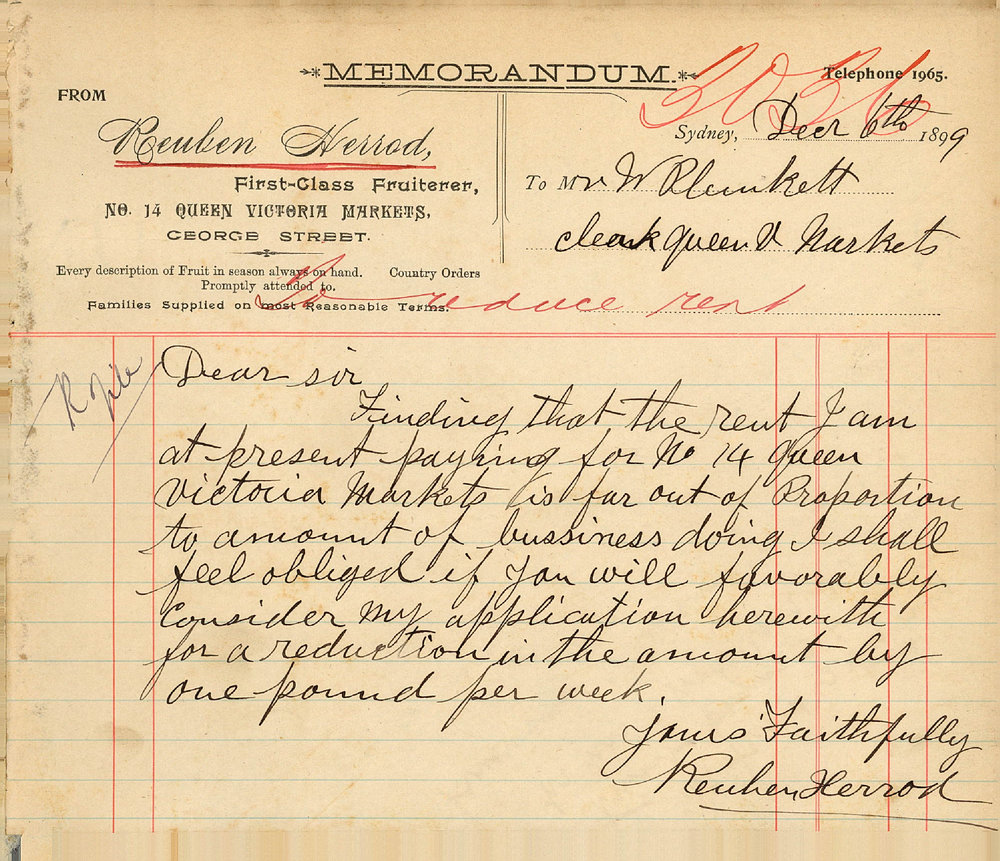 MEMORANDUM.
Telephone 1965.
3036
FROM
Sydney, Decr 6th 1899
Reuben Herrod,
To Mr W Plunkett
First-Class Fruiterer,
No. 14 QUEEN VICTORIA MARKETS,
Clerk Queen V Markets
GEORGE STREET.
Every description of Fruit in season always on hand. Country Orders
Promptly attended to.
Families Supplied on most Reasonable Terms.
To reduce rent
Dear sir
Finding that the rent I am
at present paying for No 14 Queen
Victoria Markets is far out of Proportion
to amount of bussiness doing I shall
feel obliged if you will favorably
consider my application herewith
for a reduction in the amount by
one pound per week.
yours Faithfully
Reuben Herrod